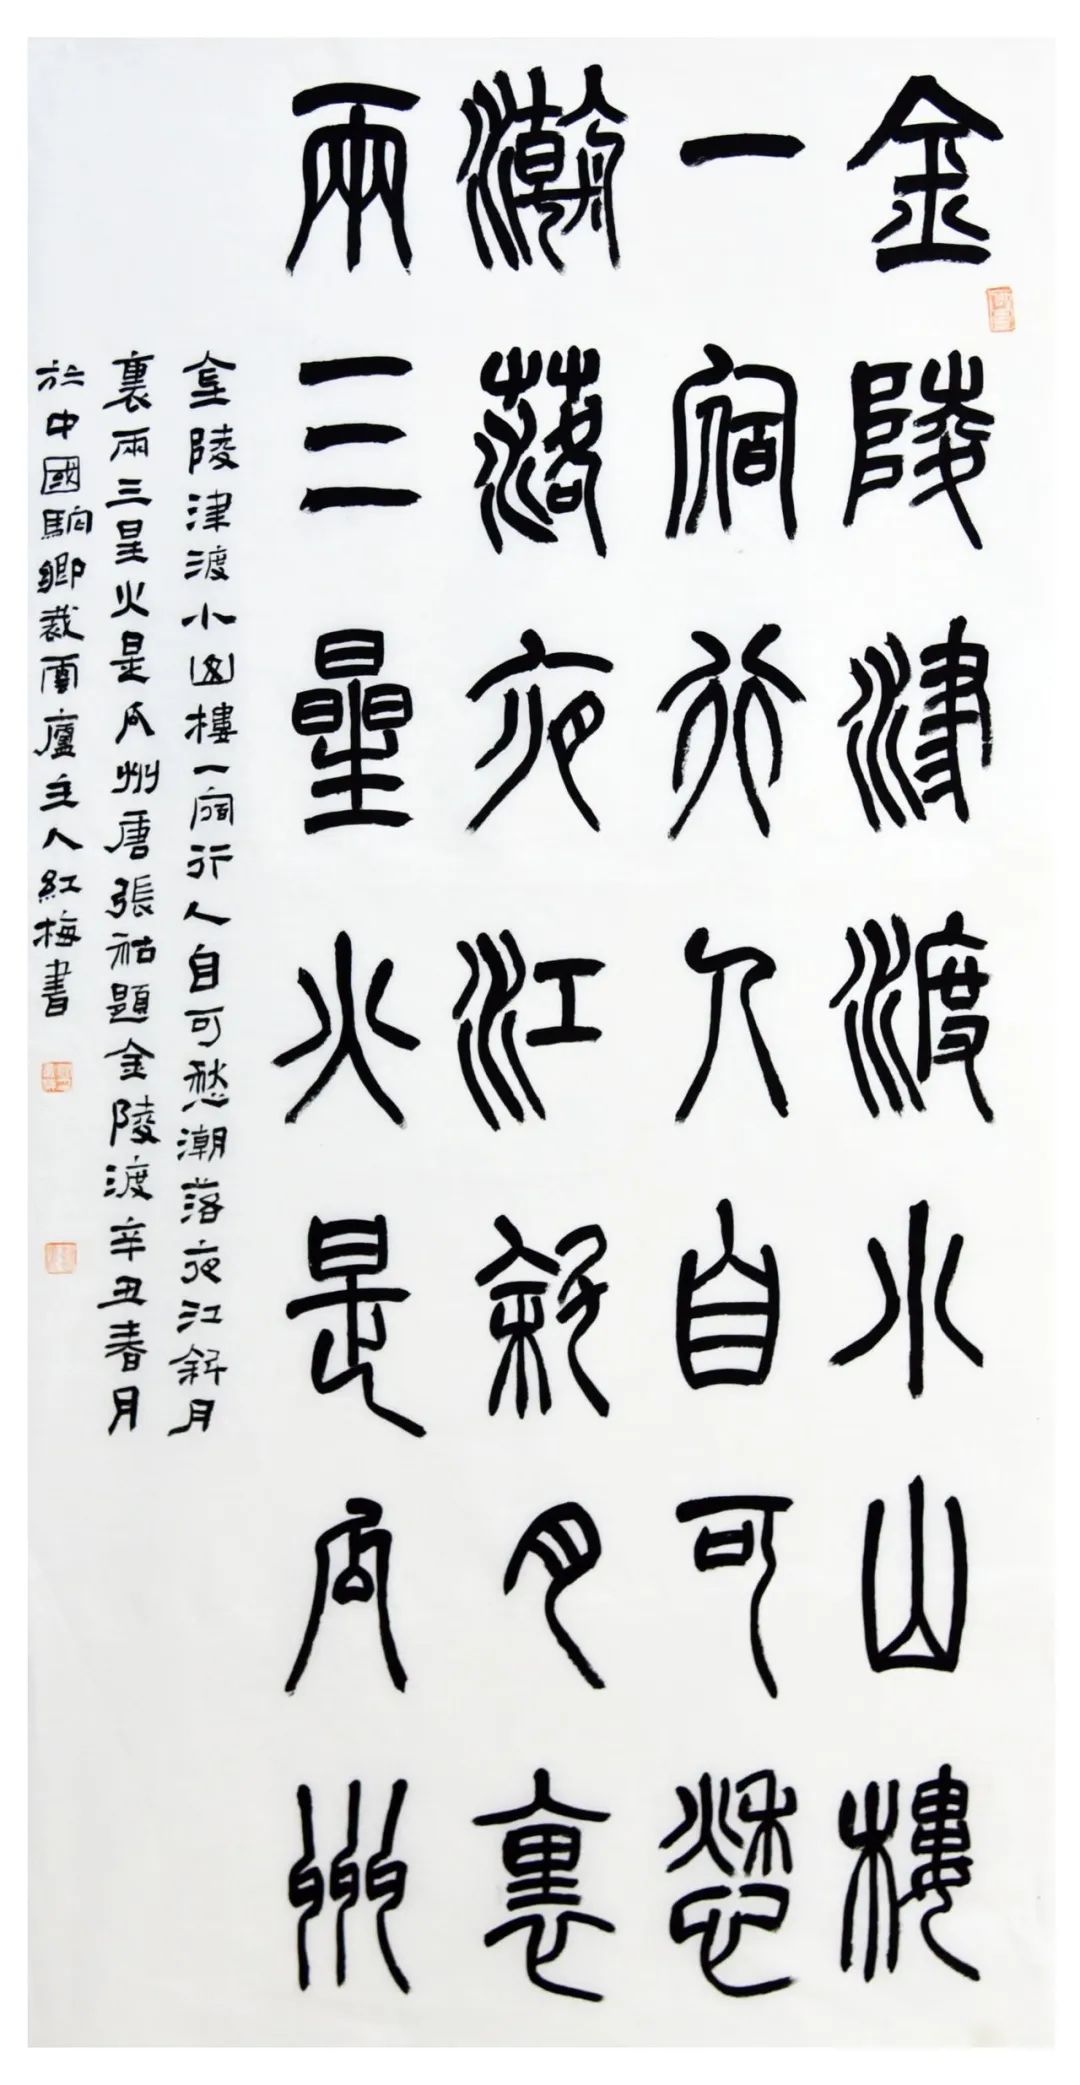 金陵津渡小山樓
一宿行人自可愁
潮落夜江斜月裏
兩三星火是瓜州
金陵津渡小山樓一宿行人自可愁潮落夜江斜月
裏兩三星火是瓜州唐張祜題金陵渡辛丑春月
於中國駒鄉裁雲廬主人紅梅書